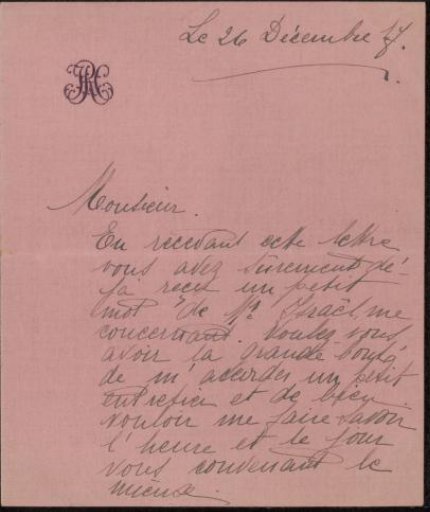 Le 26 Décembre 17.
Monsieur.
En recevant cette lettre
vous avez sûrement dé-
jà reçu un petit
mot de Mr Israël me
concernant. Voulez-vous
avoir la grande bonté
de m'accorder un petit
entretien et de bien
vouloir me faire savoir
l'heure et le jour
vous convenant le
mieux.